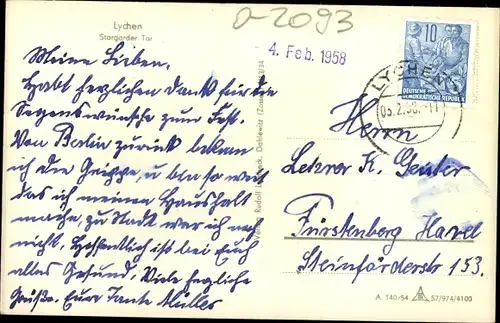 Lychen
Stargarder Tor
a-2093
4. Feb. 1958
10
DEUTSCHE
DEMOKRATISCHE REPUBLIK
LYCHEN
03.2.58.-11
Meine Lieben,
Habt herzlichen Dank für die
Segenswünsche zum Fest.
Von Berlin zurück bekam
ich die Grippe, u bin so weit
das ich meinen Haushalt
mache, zu Stadt war ich noch
nicht. Hoffentlich ist bei Euch
alles Gesund. Viele herzliche
Grüße. Eure Tante Müller
Verlag Rudolf Dahlewitz (Zossen)
Herrn
Lehrer K. Genster
Fürstenberg Havel
Steinförderstr 153.
A 140/54 57/974/4100